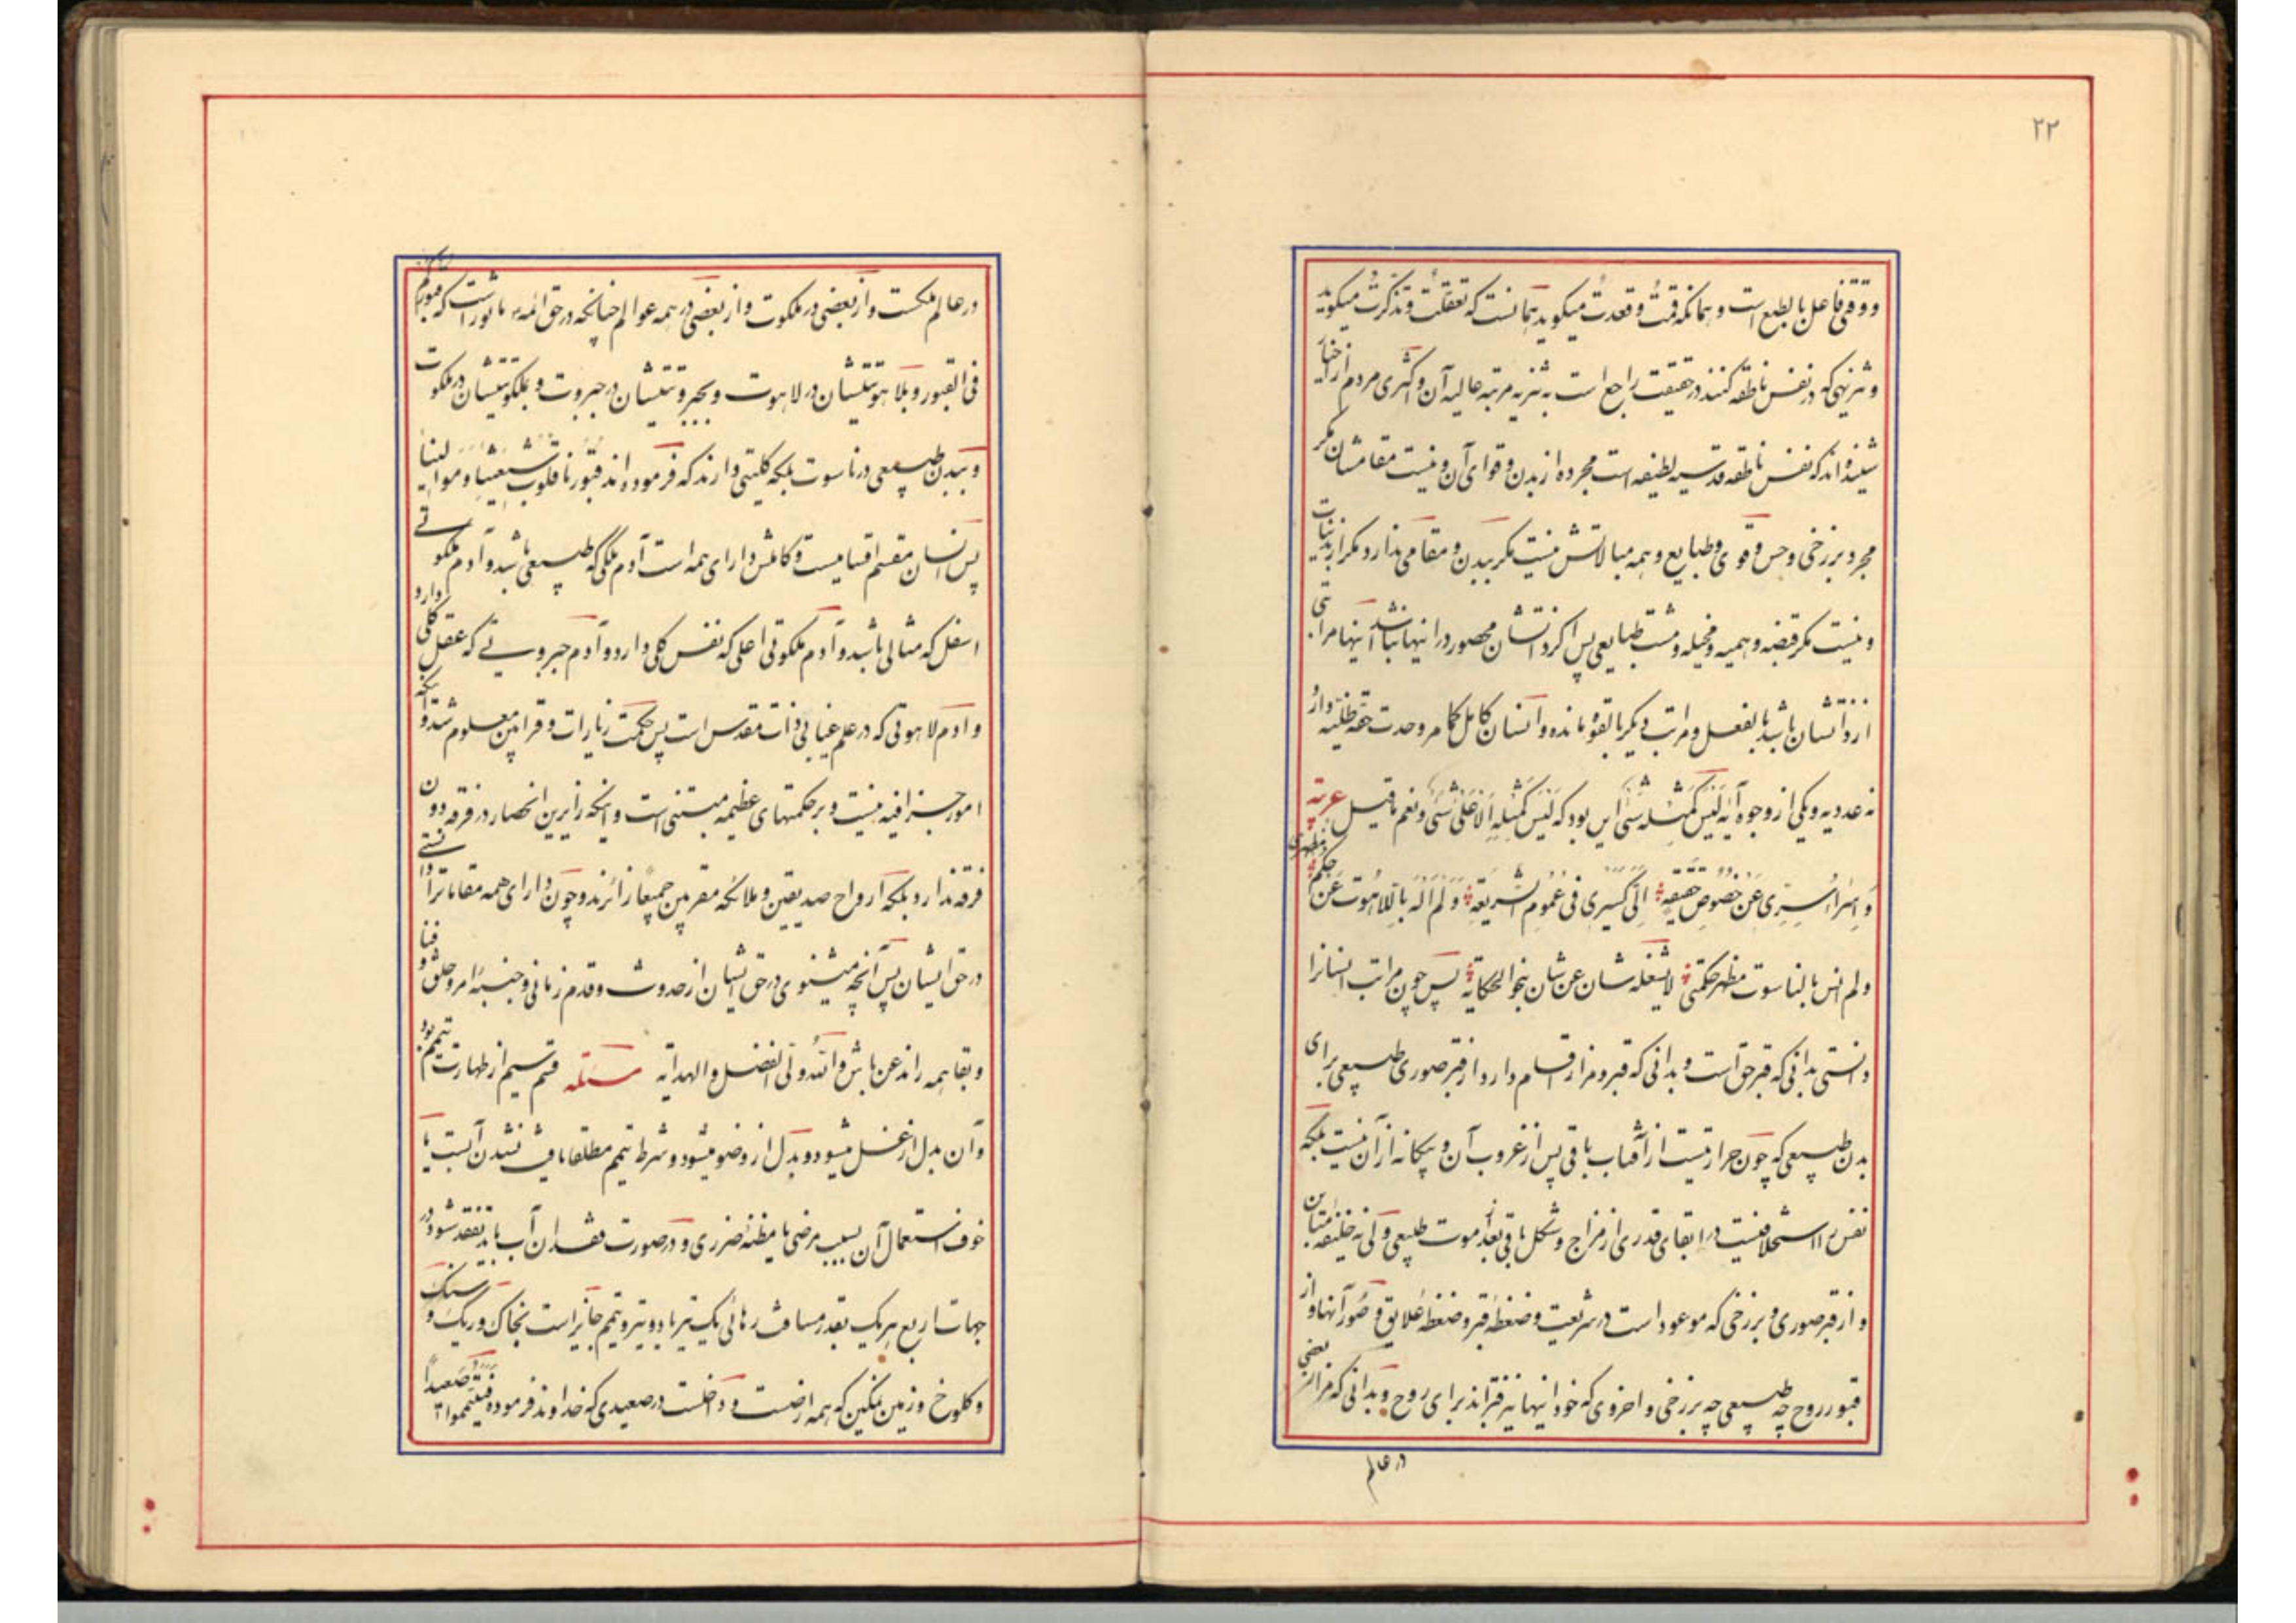 ۲۲
و وقتی فاعل بالطبع است و همانکه قمتُ و قعدتُ میکوید همانست که تعقلتُ و تذکرتُ میکوید
و تنزیهی که در نفس ناطقه کنند در حقیقت راجع است به تنزیه مرتبه عالیه آن و اکثری مردم از اخبار
شینده اند که نفس ناطقه قدسیه لطیفه است مجرده از بدن و قوای آن و نیست مقامشان مکر
مجرد برزخی و حس و قوی و طبایع و همه مبالاتش نیست مکر ببدن و مقامی ندارد مکر از بدنیات
و نیست مکر قبضه وهمیه و مخیله و مشت طبایعی پس اکر ذاتشان محصور در اینها نباشد اینها مراتبی
از ذاتشان باشد بالفعل و مراتب دیکر بالقوه مانده و انسان کامل کما مر وحدت حقه ظلیه دارد
نه عددیه و یکی از وجوه آیه لَیْسَ کَمِثْلِه شَیْء این بود که لَیْسَ کَمِثْلِهِ الاعلی شَیْء و نعم ما قیل عربیّه
وَ اِسْراء سِرّی عَنْ خُصُوصِ حَقیقَةٍ اِلَیَّ کَسَیْری فی عُمُومِ الشَّریعَةِ وَ لَمْ اَلْهُ بِاللاهُوتِ عَنْ حُکْمِ مَظْهَری
ولم انس بالناسوت مظهر حکمتی لا یشغله شان عن شان بنحو الحکایة پس چون مراتب انسانرا
دانستی بدانی که قبر حق است و بدانی که قبر و مزار اقسام دارد از قبر صوری طبیعی برای
بدن طبیعی که چون حرارتیست از آفتاب باقی پس از غروب آن و بیکانه از آن نیست بلکه
نفس را استخلافیست در ابقای قدری از مزاج و شکل باقی بعد از موت طبیعی ولی نه خلیفه مباین
و از قبر صوری و برزخی که موعود است در شریعت و ضغطه قبر و ضغطه علایق و صُوَر آنها و از
قبور روح چه طبیعی چه برزخی و اخروی که خود اینها نیز قبراند برای روح و بدانی که مزار بعضی
در عالم
در عالم ملکست و از بعضی در ملکوت و از بعضی در همه عوالم چنانچه در حق ائمه ماثور است که قبورکم
فی القبور و بلاهوتیتشان در لاهوت و بجبروتیتشان در جبروت و بملکوتیتشان در ملکوت
و ببدن طبیعی در ناسوت بلکه کلیتی دارند که فرموده اند قبورنا قلوب شیعتنا و موالینا
پس انسان مقسم اقسامیست و کاملش دارای همه است آدم ملکی که طبیعی باشد و آدم ملکوتی
اسفل که مثالی باشد و آدم ملکوتی اعلی که نفس کلی دارد و آدم جبروتی که عقل کلی دارد
و آدم لاهوتی که در علم عنایی ذات مقدس است پس حکمت زیارات و قرابین معلوم شد و آنکه
امور جزافیه نیست و بر حکمتهای عظیمه مبتنی است و اینکه زایرین انحصار در فرقه دون
فرقه ندارد بلکه ارواح صدیقین و ملائکه مقربین جمیعًا زائرند و چون دارای همه مقاماترا دانستی
در حق ایشان پس آنچه میشنوی در حق ایشان از حدوث و قدم زمانی و جنبهٔ امر و خلق و فنا
و بقا همه را اذعن باش والله ولی الفضل و الهدایة مسئله قسم سیم از طهارت تیمم بود
و آن بدل از غسل میشود و بدل از وضو میشود و شرط تیمم مطلقا یافت نشدن آبست یا
خوف استعمال آن بسبب مرضی یا مظنه ضرری و در صورت فقدان آب باید تفقد شود در
جهات اربع هریک بقدر مسافت رهائی یک تیر یا دو تیر و تیمم جایز است بخاک و ریک و سنک
و کلوخ و زمین نمکین که همه ارضست و داخلست در صعیدی که خداوند فرموده فَتَیَمَّمُوا صَعیداً